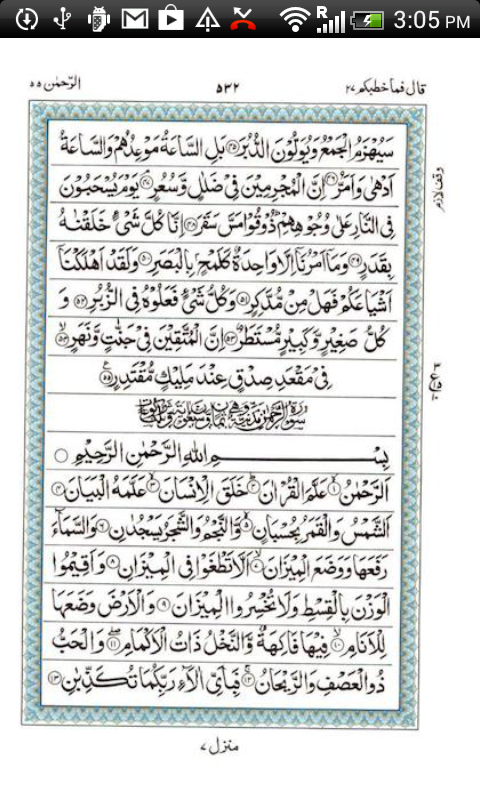 3:05 PM
قال فما خطبكم ٢٧
٥٣٢
الرّحمٰن ٥٥
سَيُهْزَمُ الْجَمْعُ وَيُوَلُّوْنَ الدُّبُرَ ﴿٤٥﴾ بَلِ السَّاعَةُ مَوْعِدُهُمْ وَالسَّاعَةُ
اَدْهٰى وَاَمَرُّ ﴿٤٦﴾ اِنَّ الْمُجْرِمِيْنَ فِىْ ضَلٰلٍ وَّسُعُرٍ ﴿٤٧﴾ يَوْمَ يُسْحَبُوْنَ
فِى النَّارِ عَلٰى وُجُوْهِهِمْ ذُوْقُوْا مَسَّ سَقَرَ ﴿٤٨﴾ اِنَّا كُلَّ شَىْءٍ خَلَقْنٰهُ
بِقَدَرٍ ﴿٤٩﴾ وَمَاۤ اَمْرُنَاۤ اِلَّا وَاحِدَةٌ كَلَمْحٍۢ بِالْبَصَرِ ﴿٥٠﴾ وَلَقَدْ اَهْلَكْنَاۤ
اَشْيَاعَكُمْ فَهَلْ مِنْ مُّدَّكِرٍ ﴿٥١﴾ وَكُلُّ شَىْءٍ فَعَلُوْهُ فِى الزُّبُرِ ﴿٥٢﴾ وَ
كُلُّ صَغِيْرٍ وَّكَبِيْرٍ مُّسْتَطَرٌ ﴿٥٣﴾ اِنَّ الْمُتَّقِيْنَ فِىْ جَنّٰتٍ وَّنَهَرٍ ﴿٥٤﴾
فِىْ مَقْعَدِ صِدْقٍ عِنْدَ مَلِيْكٍ مُّقْتَدِرٍ ﴿٥٥﴾
بِسْمِ اللّٰهِ الرَّحْمٰنِ الرَّحِيْمِ
اَلرَّحْمٰنُ ﴿١﴾ عَلَّمَ الْقُرْاٰنَ ﴿٢﴾ خَلَقَ الْاِنْسَانَ ﴿٣﴾ عَلَّمَهُ الْبَيَانَ ﴿٤﴾
اَلشَّمْسُ وَالْقَمَرُ بِحُسْبَانٍ ﴿٥﴾ وَّالنَّجْمُ وَالشَّجَرُ يَسْجُدٰنِ ﴿٦﴾ وَالسَّمَآءَ
رَفَعَهَا وَوَضَعَ الْمِيْزَانَ ﴿٧﴾ اَلَّا تَطْغَوْا فِى الْمِيْزَانِ ﴿٨﴾ وَاَقِيْمُوا
الْوَزْنَ بِالْقِسْطِ وَلَا تُخْسِرُوا الْمِيْزَانَ ﴿٩﴾ وَالْاَرْضَ وَضَعَهَا
لِلْاَنَامِ ﴿١٠﴾ فِيْهَا فَاكِهَةٌ وَّالنَّخْلُ ذَاتُ الْاَكْمَامِ ﴿١١﴾ وَالْحَبُّ
ذُو الْعَصْفِ وَالرَّيْحَانُ ﴿١٢﴾ فَبِاَىِّ اٰلَآءِ رَبِّكُمَا تُكَذِّبٰنِ ﴿١٣﴾
وقف لازم
منزل ٧